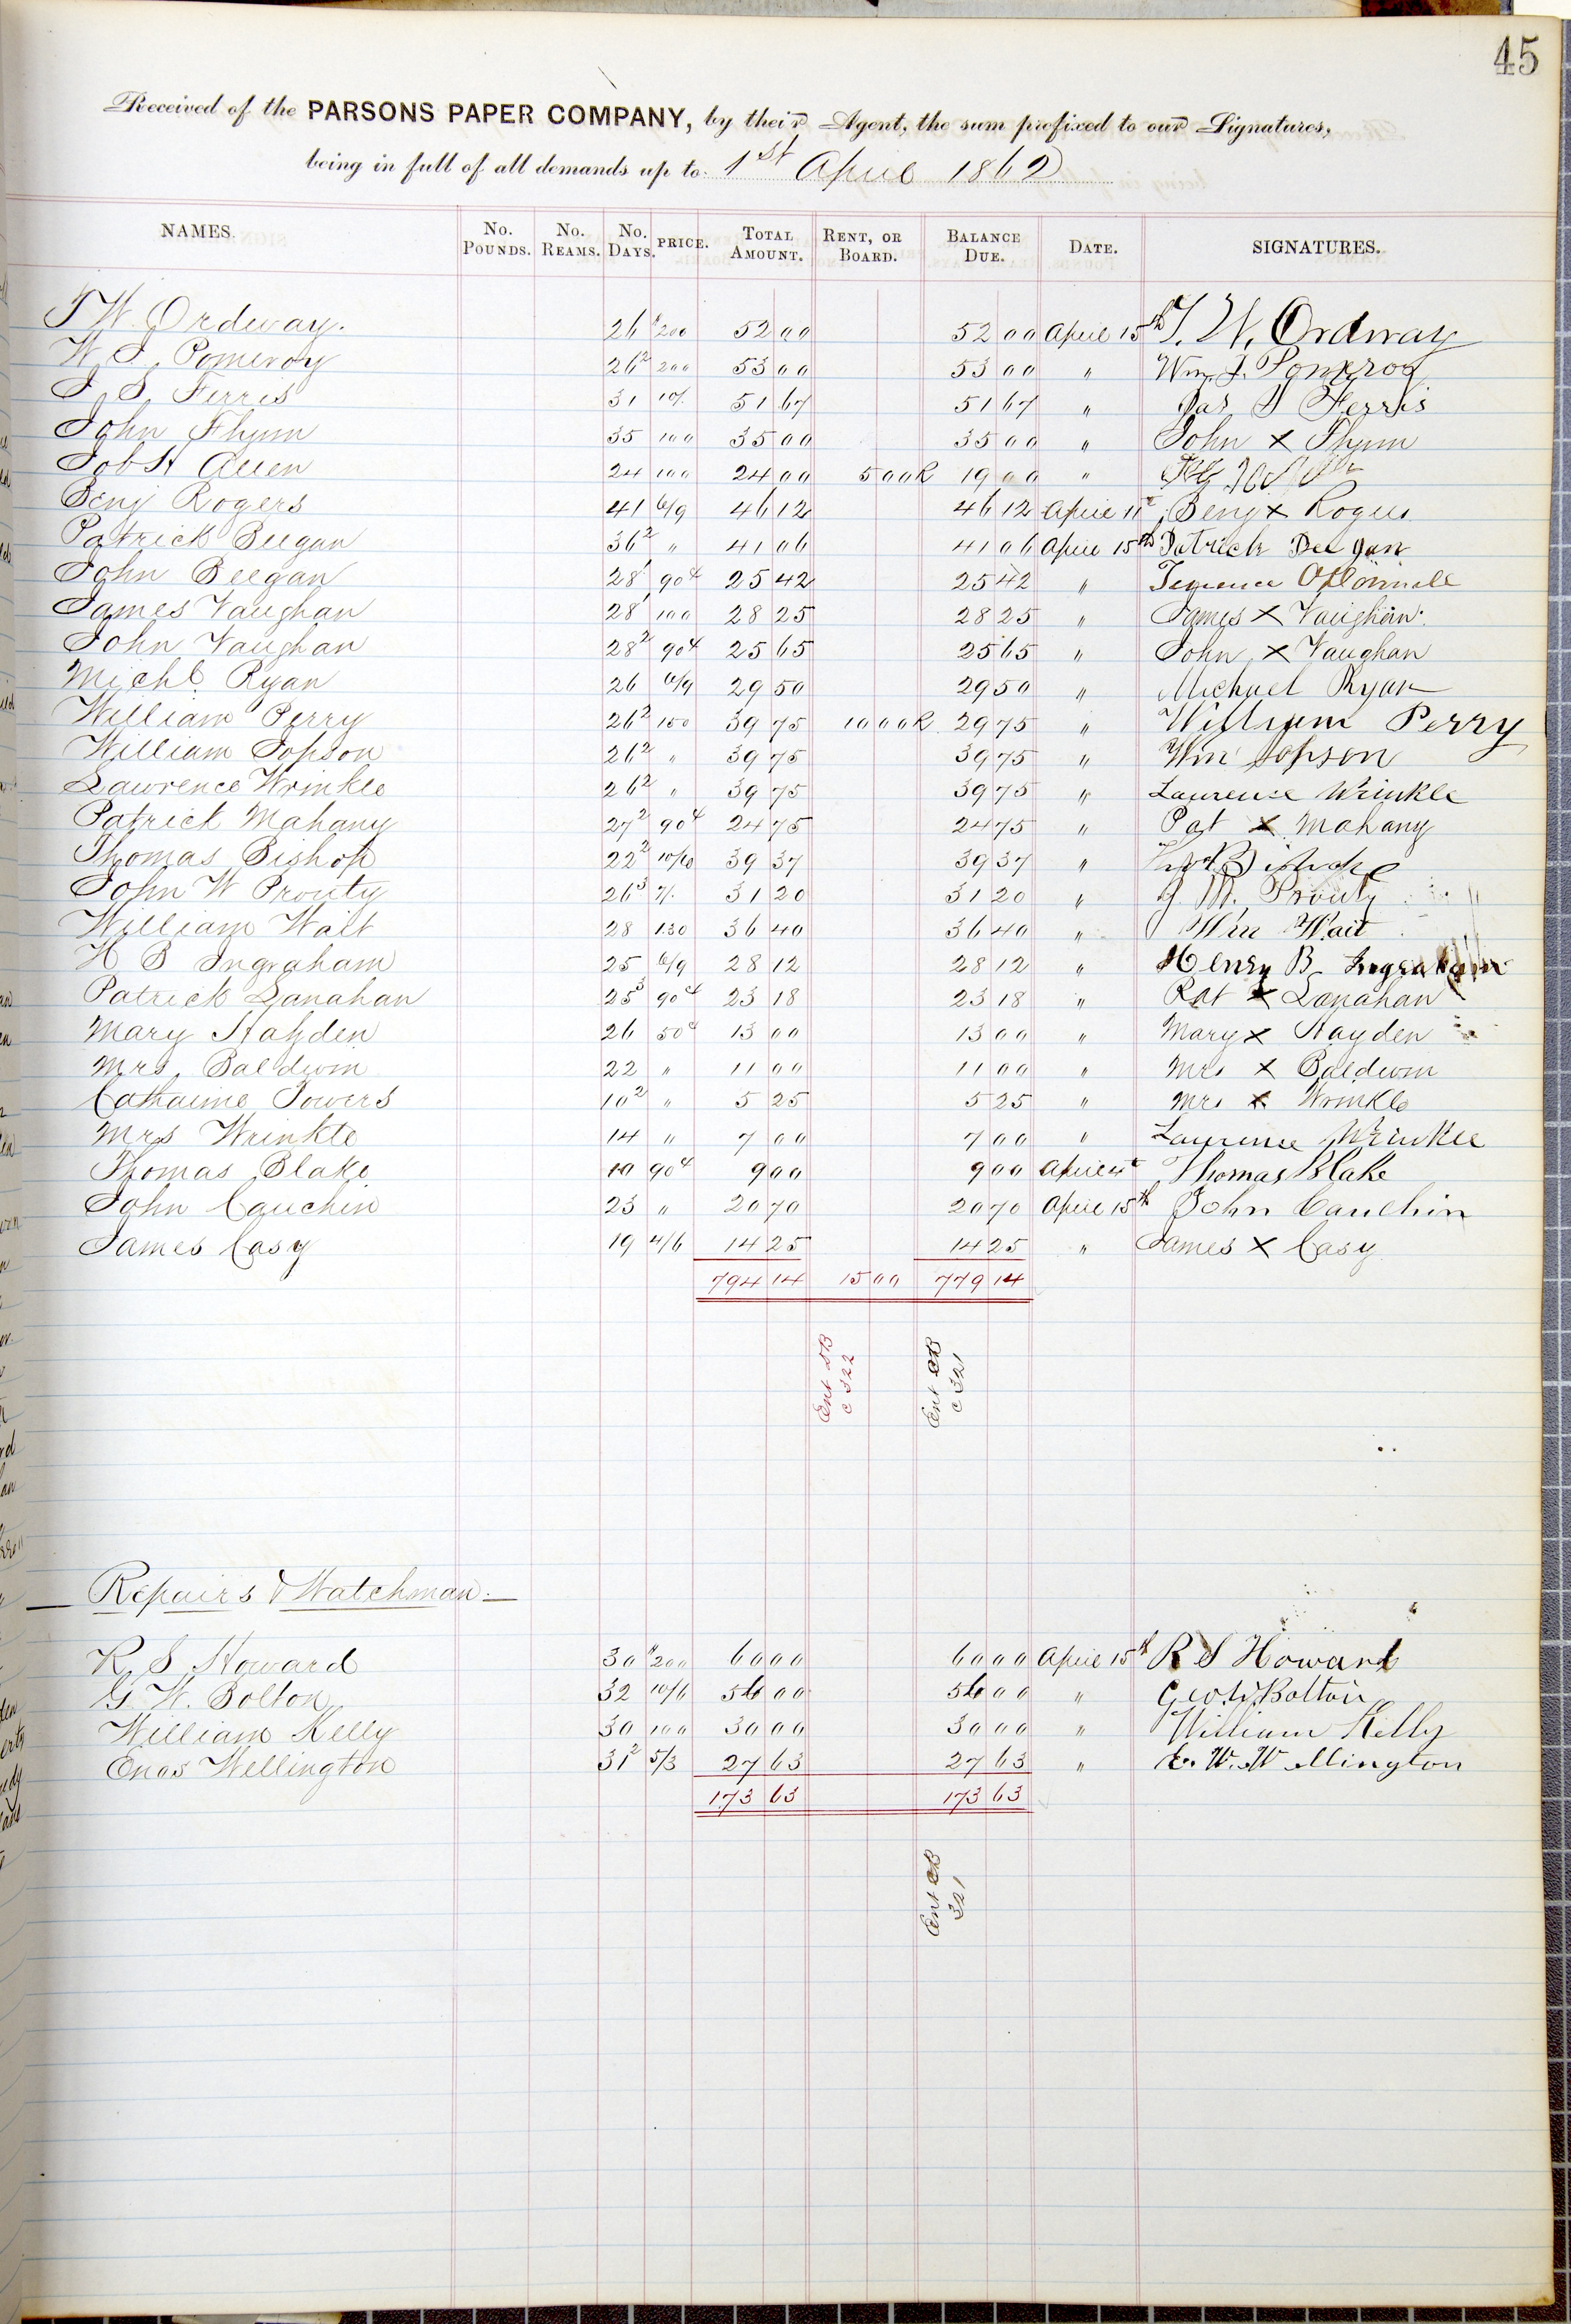 45
Received of the PARSONS PAPER COMPANY, by their Agent, the sum prefixed to our Signatures,
being in full of all demands up to 1st April 1862
NAMES. No. POUNDS. No. REAMS. No. DAYS. PRICE. TOTAL AMOUNT. RENT, OR BOARD. BALANCE DUE. DATE. SIGNATURES.
T W. Ordway. 26 $200 52 00 52 00 April 15th T. W. Ordway
W. J. Pomeroy 26² 200 53 00 53 00 " Wm. J. Pomeroy
J. S. Ferris 31 10/ 51 67 51 67 " Jas S Ferris
John Flynn 35 100 35 00 35 00 " John X Flynn
Job H Allen 24 100 24 00 5 00 R 19 00 "
Benj Rogers 41 6/9 46 12 46 12 April 11th Benj X Rogers
Patrick Beegan 36² " 41 06 41 06 April 15th Patrick Bee gan
John Beegan 28¹ 90¢ 25 42 25 42 " Terence O'Connell
James Vaughan 28¹ 100 28 25 28 25 " James X Vaughan
John Vaughan 28² 90¢ 25 65 25 65 " John X Vaughan
Michl Ryan 26 6/9 29 50 29 50 " Michael Ryan
William Perry 26² 150 39 75 10 00 R 29 75 " William Perry
William Jopson 26² " 39 75 39 75 " Wm Jopson
Lawrence Wrinkle 26² " 39 75 39 75 " Laurence Wrinkle
Patrick Mahany 27² 90¢ 24 75 24 75 " Pat X Mahany
Thomas Bishop 22² 10/6 39 37 39 37 "
John W Prouty 26³ 7/. 31 20 31 20 " J. W. Prouty
William Wait 28 130 36 40 36 40 " Wm Wait
H B Ingraham 25 6/9 28 12 28 12 " Henry B Ingraham
Patrick Lanahan 25³ 90¢ 23 18 23 18 " Pat X Lanahan
Mary Hayden 26 50¢ 13 00 13 00 " Mary X Hayden
Mrs. Baldwin 22 " 11 00 11 00 " Mrs X Baldwin
Catharine Powers 10² " 5 25 5 25 " Mrs X Wrinkle
Mrs Wrinkle 14 " 7 00 7 00 " Laurence Wrinkle
Thomas Blake 10 90¢ 9 00 9 00 April 4th Thomas Blake
John Cauchin 23 " 20 70 20 70 April 15th John Cauchin
James Casy 19 4/6 14 25 14 25 " James X Casy
794 14 15 00 779 14
Ent DB
c 322
Ent CB
c 321
Repairs & Watchman.
R. S Howard 30 $200 60 00 60 00 April 15th R S Howard
G. W. Bolton 32 10/6 56 00 56 00 " Geo W Bolton
William Kelly 30 100 30 00 30 00 " William Kelly
Enos Wellington 31² 5/3 27 63 27 63 " E. W. Wellington
173 63 173 63
Ent CB
321